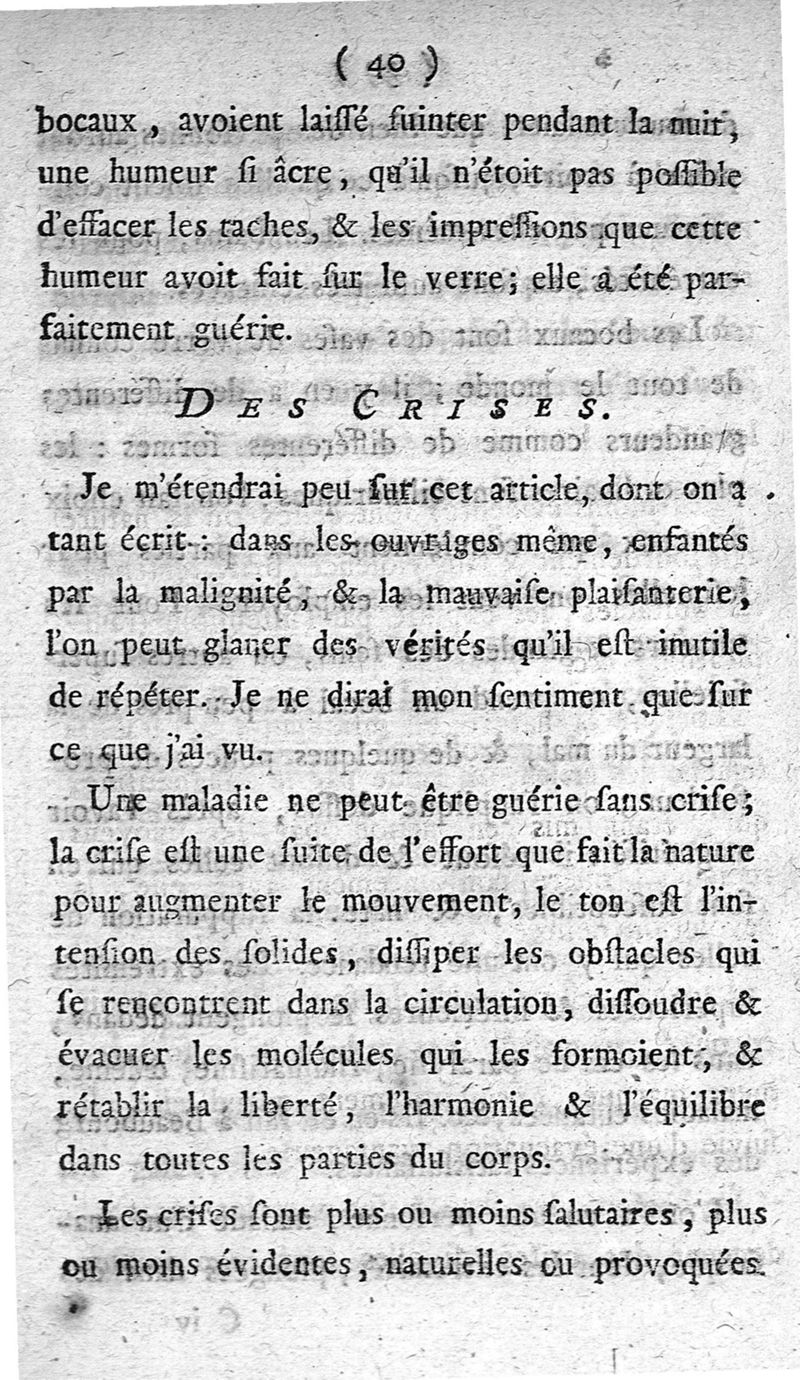 ( 40 )
bocaux, avoient laiſſé ſuinter pendant la nuit,
une humeur ſi âcre, qu'il n'étoit pas poſſible
d'effacer les taches, & les impreſſions que cette
humeur avoit fait ſur le verre; elle a été par-
faitement guérie.
DES CRISES.
Je m'étendrai peu ſur cet article, dont on a
tant écrit : dans les ouvrages même, enfantés
par la malignité, & la mauvaiſe plaiſanterie,
l'on peut glaner des vérités qu'il eſt inutile
de répéter. Je ne dirai mon ſentiment que ſur
ce que j'ai vu.
Une maladie ne peut être guérie ſans criſe;
la criſe eſt une ſuite de l'effort que fait la nature
pour augmenter le mouvement, le ton eſt l'in-
tenſion des ſolides, diſſiper les obſtacles qui
ſe rencontrent dans la circulation, diſſoudre &
évacuer les molécules qui les formoient, &
rétablir la liberté, l'harmonie & l'équilibre
dans toutes les parties du corps.
Les criſes ſont plus ou moins ſalutaires, plus
ou moins évidentes, naturelles ou provoquées.